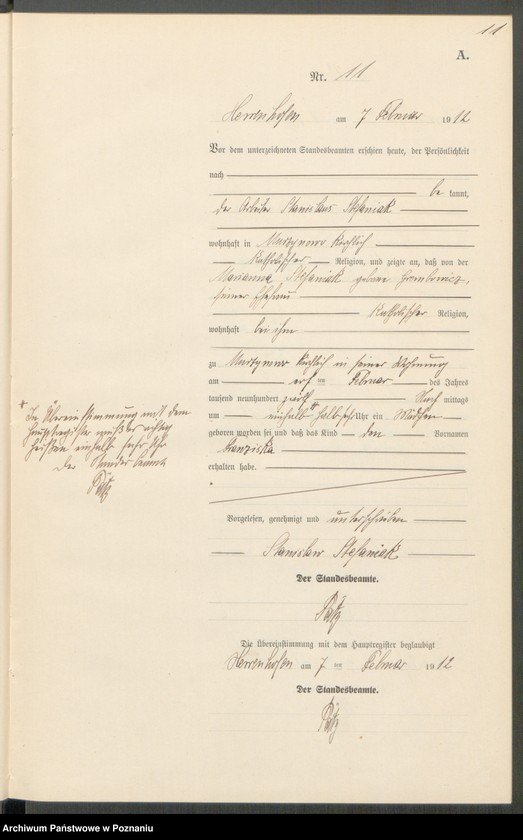 11
A.
Nr. 11
Herrenhofen am 7 Februar 1912
Vor dem unterzeichneten Standesbeamten erschien heute, der Persönlichkeit
nach
be kannt,
der Arbeiter Stanislaus Stefaniak
wohnhaft in Murzynowo kirchlich
katholischer Religion, und zeigte an, daß von der
Marianna Stefaniak geborene
seiner Ehefrau
katholischer Religion,
wohnhaft bei ihm
zu Murzynowo kirchlich in seiner Wohnung
am ten Februar des Jahres
tausend neunhundert zwölf mittags
um Uhr ein Mädchen
geboren worden sei und daß das Kind den Vornamen
Franziska
erhalten habe.
In Übereinstimmung mit dem
Hauptregister
heißen einhalb Uhr
Der Standesbeamte
Vorgelesen, genehmigt und unterschrieben
Stanisław Stefaniak
Der Standesbeamte.
Die Übereinstimmung mit dem Hauptregister beglaubigt
Herrenhofen am 7 ten Februar 1912
Der Standesbeamte.
Archiwum Państwowe w Poznaniu